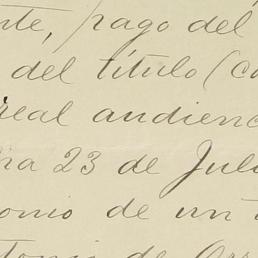 nte, pago del
del título (co
real audienc
ha 23 de Juli
onio de un t
tonio de Orr